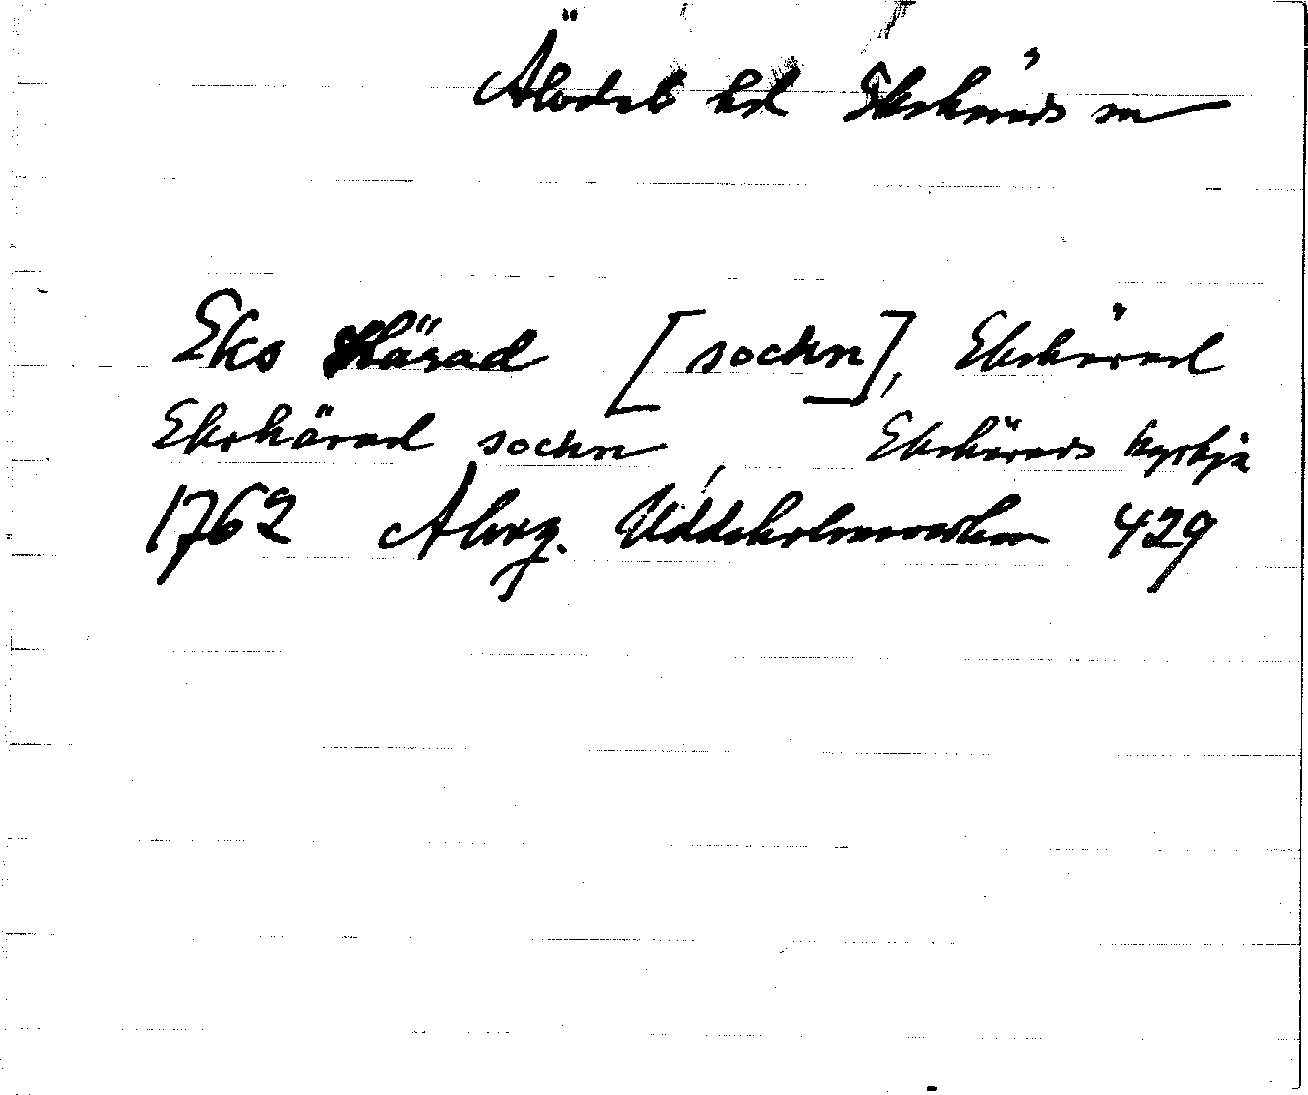 Älvdals hd Ekshärads sn
Eks Härad [sockn], Ekshärad
Ekshärad sockn, Ekshärads kyrkja
1762 Alvrg. Uddeholmsverken 429